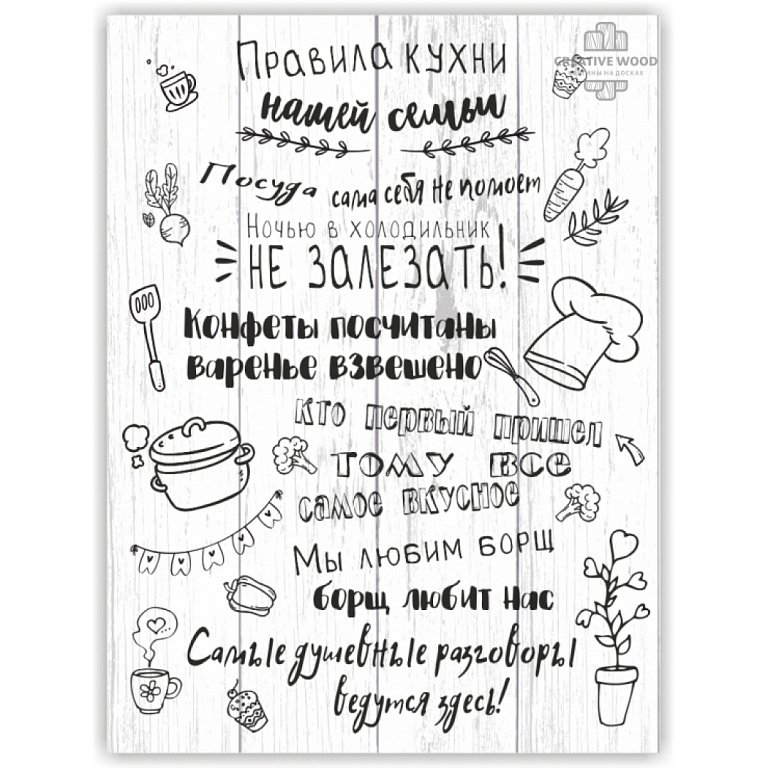 CREATIVE WOOD
КАРТИНЫ НА ДОСКАХ
Правила кухни
нашей семьи
Посуда сама себя не помоет
Ночью в холодильник
НЕ ЗАЛЕЗАТЬ!
Конфеты посчитаны
варенье взвешено
Кто первый пришел
тому все
самое вкусное
Мы любим борщ
борщ любит нас
Самые душевные разговоры
ведутся здесь!